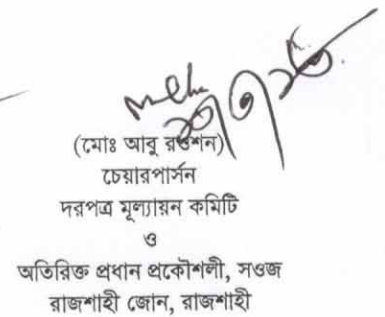 (মোঃ আবু রওশন)
চেয়ারপার্সন
দরপত্র মূল্যায়ন কমিটি
ও
অতিরিক্ত প্রধান প্রকৌশলী, সওজ
রাজশাহী জোন, রাজশাহী